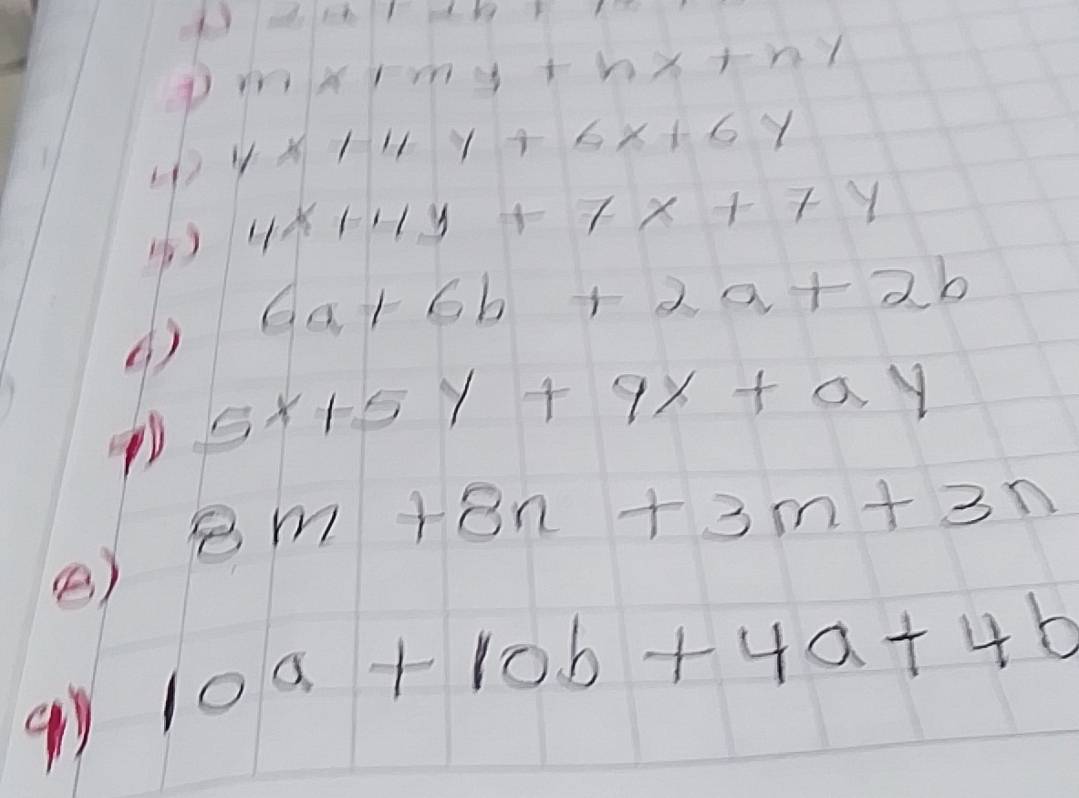 3) mx+my + nx + ny
4) 4x + 4y + 6x + 6y
5) 4x + 4y + 7x + 7y
6) 6a + 6b + 2a + 2b
7) 5x + 5y + 9x + ay
8) 8m + 8n + 3m + 3n
9) 10a + 10b + 4a + 4b